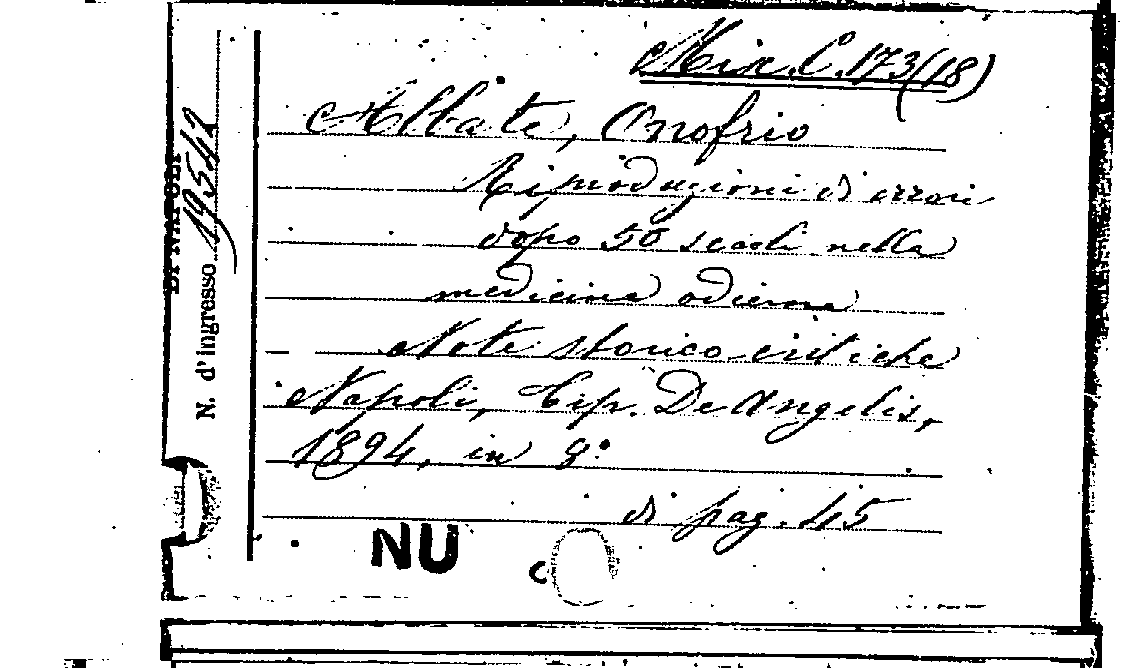 Misc. C. 173 (18)
Abbate, Onofrio
Riproduzioni di errori
dopo 50 secoli nella
medicina odierna
Note storico critiche
Napoli, Tip. De Angelis,
1894, in 8º
di pag. 45
NU
DI NAPOLI
N. d'ingresso 19542